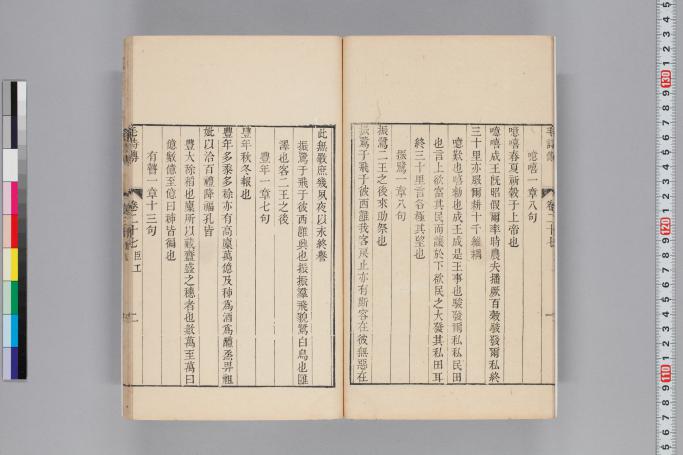 噫嘻一章八句
噫嘻春夏祈穀于上帝也
噫嘻成王旣昭假爾率時農夫播厥百穀駿發爾私終
三十里亦服爾耕十千維耦
噫歎也嘻勑也成王成是王事也駿發爾私私民田
也言上欲富其民而讓於下欲民之大發其私田耳
終三十里言各極其望也
振鷺一章八句
振鷺二王之後來助祭也
振鷺于飛于彼西雝我客戾止亦有斯容在彼無惡在
此無斁庶幾夙夜以永終譽
振鷺于飛于彼西雝興也振振羣飛貌鷺白鳥也雝
澤也客二王之後
豐年一章七句
豐年秋冬報也
豐年多黍多稌亦有高廩萬億及秭爲酒爲醴烝畀祖
妣以洽百禮降福孔皆
豐大稌稻也廩所以藏齍盛之穗者也數萬至萬曰
億數億至億曰秭皆徧也
有瞽一章十三句
毛詩傳 卷二十七 臣工 二
130
120
110